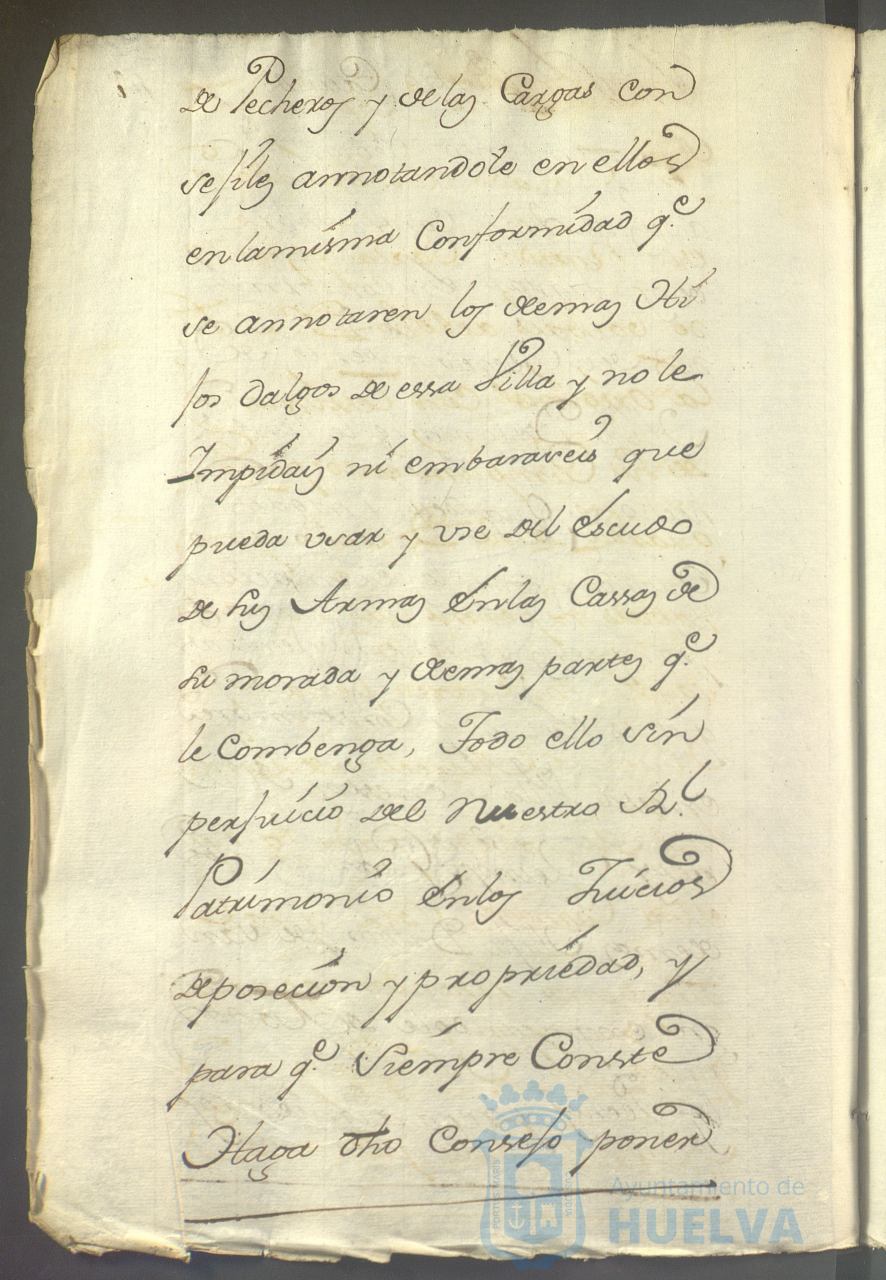 de Pecheros y de las Cargas con
sejiles annotandole en ellos
en la misma Conformidad q.e
se annotaren los demas Hi
jos dalgos de essa Villa y no le
Impidais ni embarazeis que
pueda usar y use del Escudo
de sus Armas en las Cassas de
su morada y demas partes q.e
le Combenga, Todo ello sin
perjuicio del Nuestro R.l
Patrimonio en los Juicios
de posecion y propriedad, y
para q.e siempre Conste
Haga dho Consejo poner
Ayuntamiento de
HUELVA